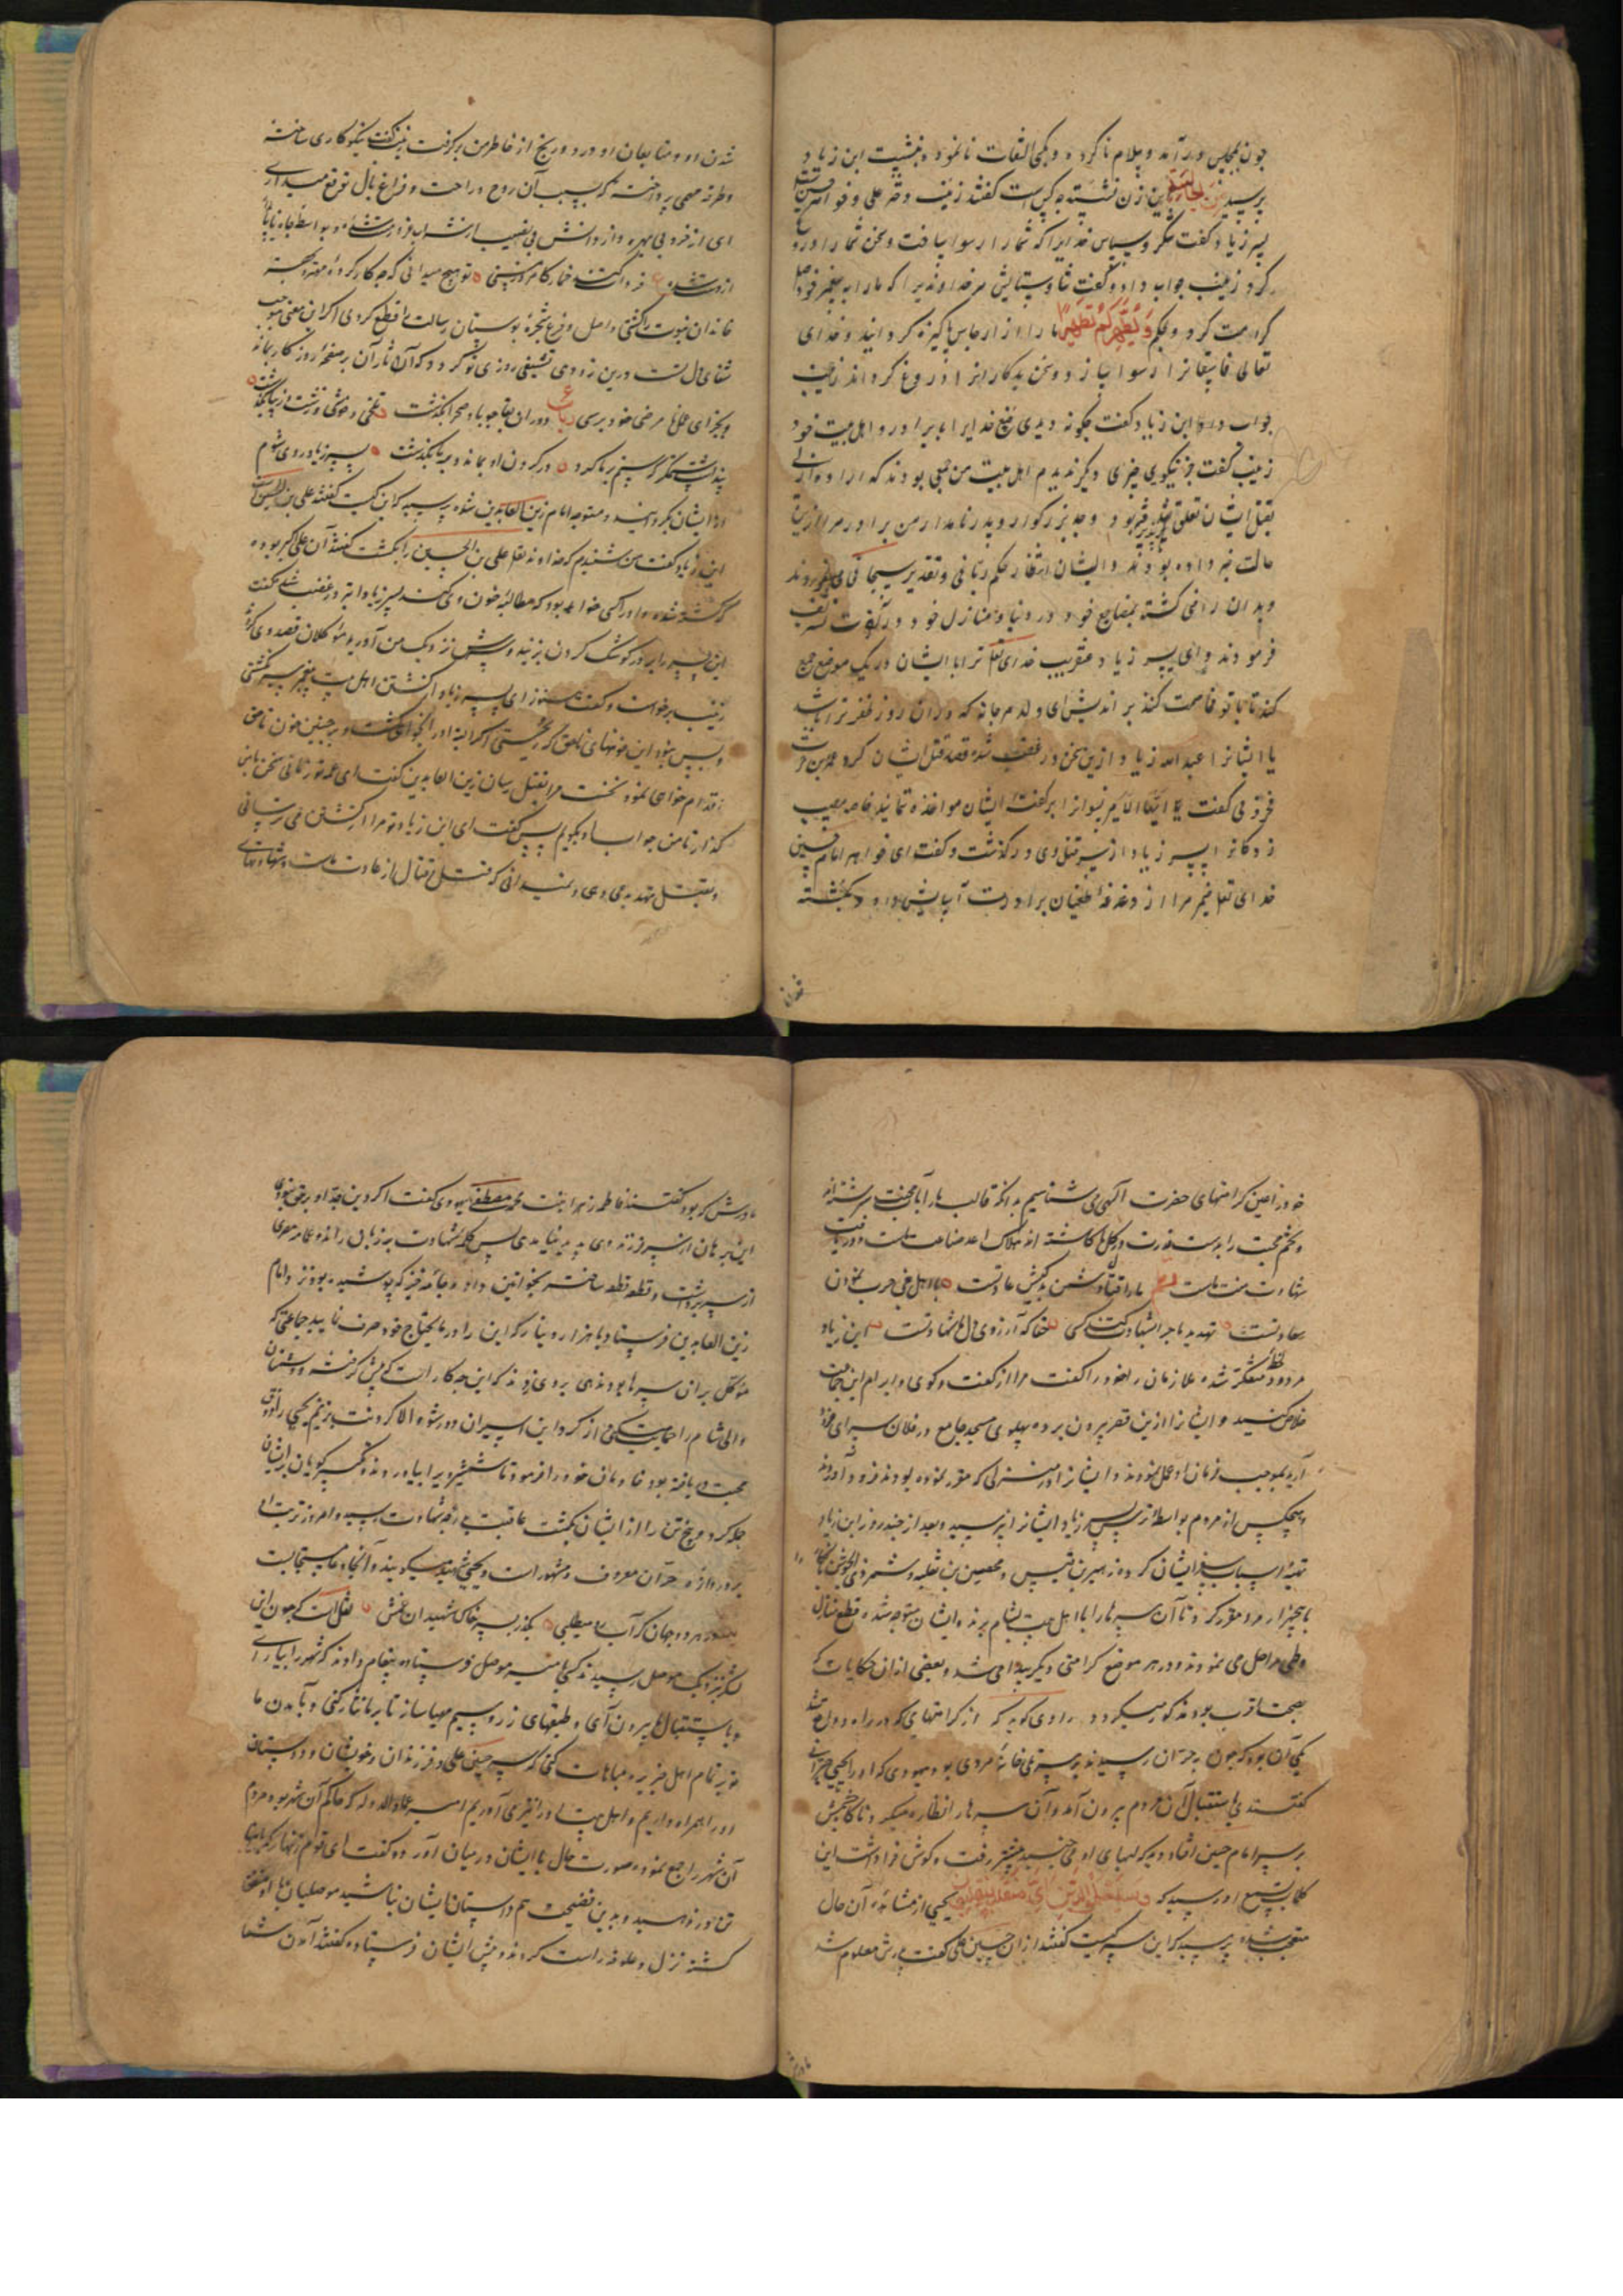 چون بمجلس درآمد و سلام ناکرده و بکس التفات نانمود و بنشست ابن زیاد
پرسید من الجالسة این زن نشسته چه کس است گفتند زینب دختر علی و خواهر حسین
پسر زیاد گفت شکر و سپاس خدایرا که شما را رسوا ساخت و سخن شما را دروغ
کرد زینب جواب داد و گفت ثنا و ستایش مر خداوندیرا که ما را به پیغمبر خود
کرامت کرد و بحکم وَیُطَهِّرَکُمْ تَطْهِیرًا ما را از ارجاس پاکیزه گردانید و خدای
تعالی فاسقانرا رسوا سازد و سخن بدکارانرا دروغ گرداند زینب
جواب داد ابن زیاد گفت چگونه دیدی صنع خدایرا با برادر و اهل بیت خود
زینب گفت جز نیکویی چیزی دیگر ندیدم اهل بیت من جمعی بودند که اراده ازلی
بقتل ایشان تعلق پذیرفته بود و جد بزرگوار و پدر نامدار من برادر مرا ازین
حالت خبر داده بودند و ایشان انتظار حکم ربانی و تقدیر سبحانی می‌بردند
و بدان راضی گشته بمضاجع خود در دنیا و منازل خود در آخرت تشریف
فرمودند و ای پسر زیاد عنقریب خدای تعالی ترا با ایشان در یک موضع جمع
کند تا با تو مخاصمت کنند براندیش ای ولد مرجانه که دران روز ظفر ترا باشد
یا ایشانرا عبدالله زیاد ازین سخن در غضب شده قصد قتل ایشان کرد عمرو بن حریث
مخزومی گفت یا ایها الامیر نسوانرا بر گفت ایشان مواخذه ننمایند خاصه مصیبت
زدگانرا پسر زیاد از سر قتل وی درگذشت و گفت ای خواهر امام حسین
خدای تعالی ضمیر مرا از دغدغه طغیان برادرت آسایش داد و بکشته
شدن او و متابعان او درد و رنج از خاطر من برگرفت زینب گفت نیکو کاری ساخته
و طرفه مهمی پرداخته که بسبب آن روح و راحت و فراغ بال توقع میداری
ای از خرد بی بهره و از دانش بی نصیب از شراب غرور مست شده و بواسطه جاه ناپایدار
از دست شده فردا کشنده خمار کامروز مستی تو هیچ میدانی که چه کار کرده مهتر و بهتر
خاندان نبوت را کشتی و اصل و فرع شجره بوستان رسالت را قطع کردی اگر این معنی موجب
شفای دل تست درین زودی تشفی روزی تو گردد که آثار آن بر صفحه روزگار بماند
و بجزای عملها مرضی خود برسی رباعی دوران بقا چو باد صحرا بگذشت تلخی و خوشی و زشت و زیبا بگذشت
پنداشت ستمگر که ستم بر ما کرد در گردن او بماند و بر ما بگذشت پسر زیاد روی شوم
از ایشان بگردانید و متوجه امام زین العابدین شده پرسید که این کیست گفتند علی بن الحسین است
ابن زیاد گفت من شنیدم که خداوند تعالی علی بن الحسین را بکشت گفتند آن علی اکبر بوده
که کشته شده و او را کسی خواهد بود که مطالبه خون وی کند پسر زیاد ابتر در غضب شده گفت
این پسر را بر در کوشک گردن بزنید و سرش نزدیک من آورید موکلان قصد وی کردند
زینب برخواست و گفت هنوز ای پسر زیاد از کشتن اهل بیت پیغمبر سیر نگشتی
و بس نبود این خونهای ناحق که ریختی اگر البته او را بخواهی کشت و بر چنین خون ناحق
اقدام خواهی نمود نخست مرا بقتل رسان زین العابدین گفت ای عمه تو زمانی سخن با من
گذار تا من جواب او بگویم پس گفت ای ابن زیاد تو مرا از کشتن می‌ترسانی
و بقتل تهدید می‌دهی و نمیدانی که قتل و قتال از عادت ماست و شهادت
خود را عین کرامتهای حضرت الهی می‌شناسیم بدانکه قالب ما را بآب محنت سرشته‌اند
و تخم محبت را بدست قدرت در گل ما کاشته‌اند هلاک اعدا صناعت ماست و دریافت
شهادت منت ماست ما را افتاد و شدن به کیش عادتست با اهل بغی حرب نمودن
سعادتست تهدید ما چرا بشهادت کند کسی حقا که آرزوی دل ما شهادتست ابن زیاد
مردود متفکر شده ملازمان خود را گفت مرا از گفت و گوی و ابرام این جماعت
خلاص کنید و ایشانرا ازین قصر بیرون برده پهلوی مسجد جامع در فلان سرای فرود
آرید بموجب فرمان او عمل نموده و ایشانرا در منزلی که مقرر نموده بودند فرود آوردند
و هیچکس از مردم بواسطه ترس پسر زیاد ایشانرا نپرسید و بعد از چند روز ابن زیاد
تهیه اسباب سفر ایشان کرد و زهیر بن قیس و محصین بن ثعلبه و شمر ذی الجوشن را
با پنجهزار مرد مقرر کرد تا آن سرها را با اهل بیت بشام برند و ایشان متوجه شده قطع منازل
و طی مراحل می‌نمودند و در هر موضع کرامتی دیگر پیدا می‌شد و بعضی ازان حکایات که
بصحت اقرب بود مذکور میگردد راوی گوید که از کرامتهای که در راه واقع شد
یکی آن بود که چون به حران رسیدند بر سر تلی خانه مردی بود یهودی که او را یحیی حرانی
گفتندی باستقبال آن مردم بیرون آمد و آن سرها را نظاره میکرد ناگاه چشمش
بر سر امام حسین افتاد دید که لبهای او می‌جنبید پیشتر رفت و گوش فرا داشت این
کلمات بسمع او رسید که وَسَیَعْلَمُ الَّذِینَ أَیَّ مُنْقَلَبٍ یَنْقَلِبُونَ یحیی از مشاهده آن حال
متعجب شده پرسید که این سر کیست گفتند ازان حسین علی گفت پدرش معلوم شد
مادرش که بود گفتند فاطمه زهرا بنت محمد مصطفی یهودی گفت اگر دین جد او بر حق نبودی
این برهان از سر فرزند وی پدید نیامدی پس کلمه شهادت بر زبان راند و عمامه مصری
از سر برداشت و قطعه قطعه ساخته بخواتین داد و جامه خز که پوشیده بود نزد امام
زین العابدین فرستاد با هزار دینار که این را در مایحتاج خود صرف نمایید جماعتی که
موکل بران سرها بودند بانگ بر وی زدند که این چه کار است که پیش گرفته و دشمنان
والی شام را حمایت میکنی از گرد این اسیران دور شو والا گردنت بزنیم یحیی را ذوق
محبت دریافته بود خادمان خود را فرمود تا شمشیر ویرا بیاورند و تکبیر گویان بر ایشان
حمله کرد و پنج تن را از ایشان بکشت عاقبت بدرجه شهادت رسید و امروز تربت او
بر دروازه حران معروف و مشهور است و یحیی شهید میگویند و آنجا دعا مستجابست
هر دو جهان گر آب میطلبی بگذر بسر خاک شهیدان غمش نقل است که چون این
لشکر بنزدیک موصل رسیدند کس بامیر موصل فرستاده پیغام دادند که شهر را بیارای
و باستقبال ما بیرون آی و طبقهای زر و سیم مهیا ساز تا بر ما نثار کنی و بآمدن ما
بر تمام اهل جزیره مباهات کنی که سر حسین علی و فرزندان و خویشان و دوستان
او را همراه داریم و اهل بیت او را نیز می‌آوریم امیر عمادالدوله که حاکم آن شهر بود مردم
آن شهر را جمع نموده صورت حال با ایشان در میان آورده گفت ای قوم زنهار که بدین
تن در ندهید و بدین فضیحت همداستان ایشان نباشید موصلیان با او متفق
گشته نزل و علوفه راست کردند و پیش ایشان فرستادند گفتند آمدن شما